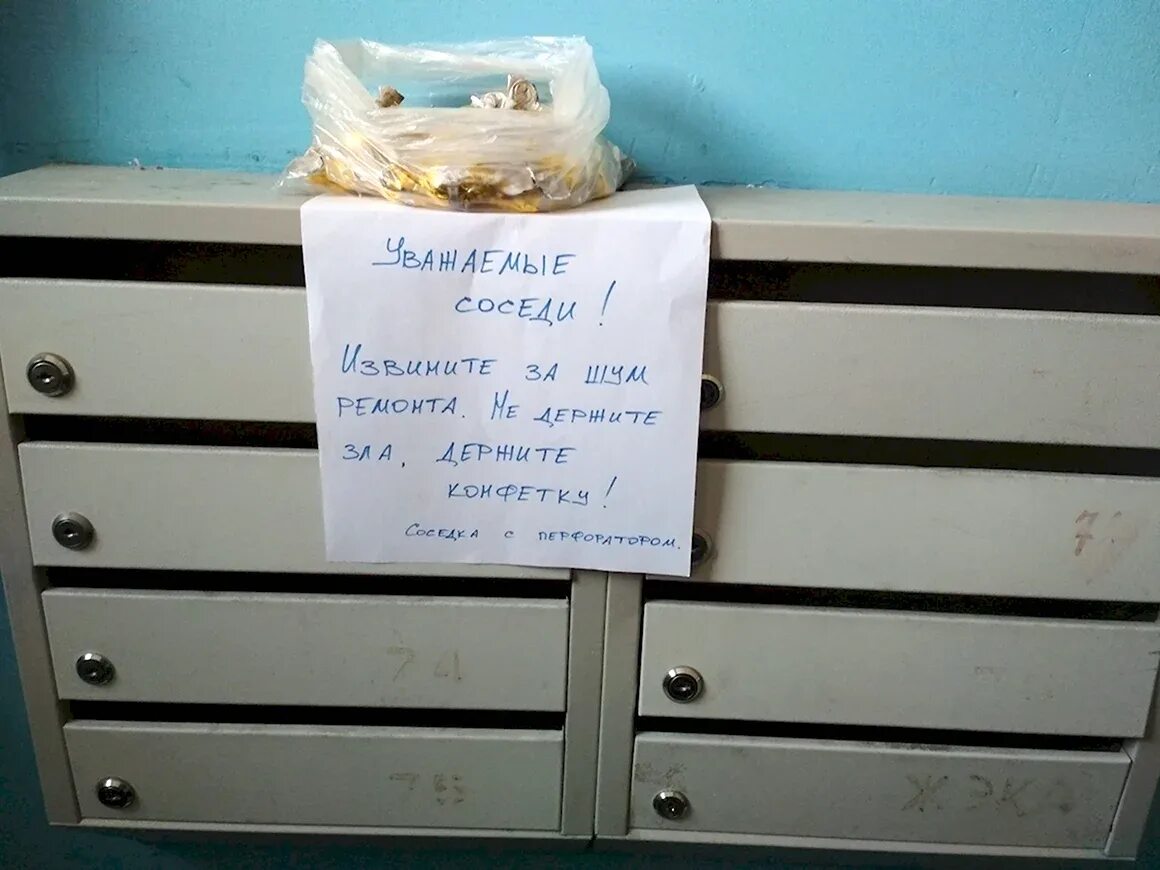 Уважаемые
соседи!
Извините за шум
ремонта. Не держите
зла, держите
конфетку!
Соседка с перфоратором.
74
75
ЖЭКА